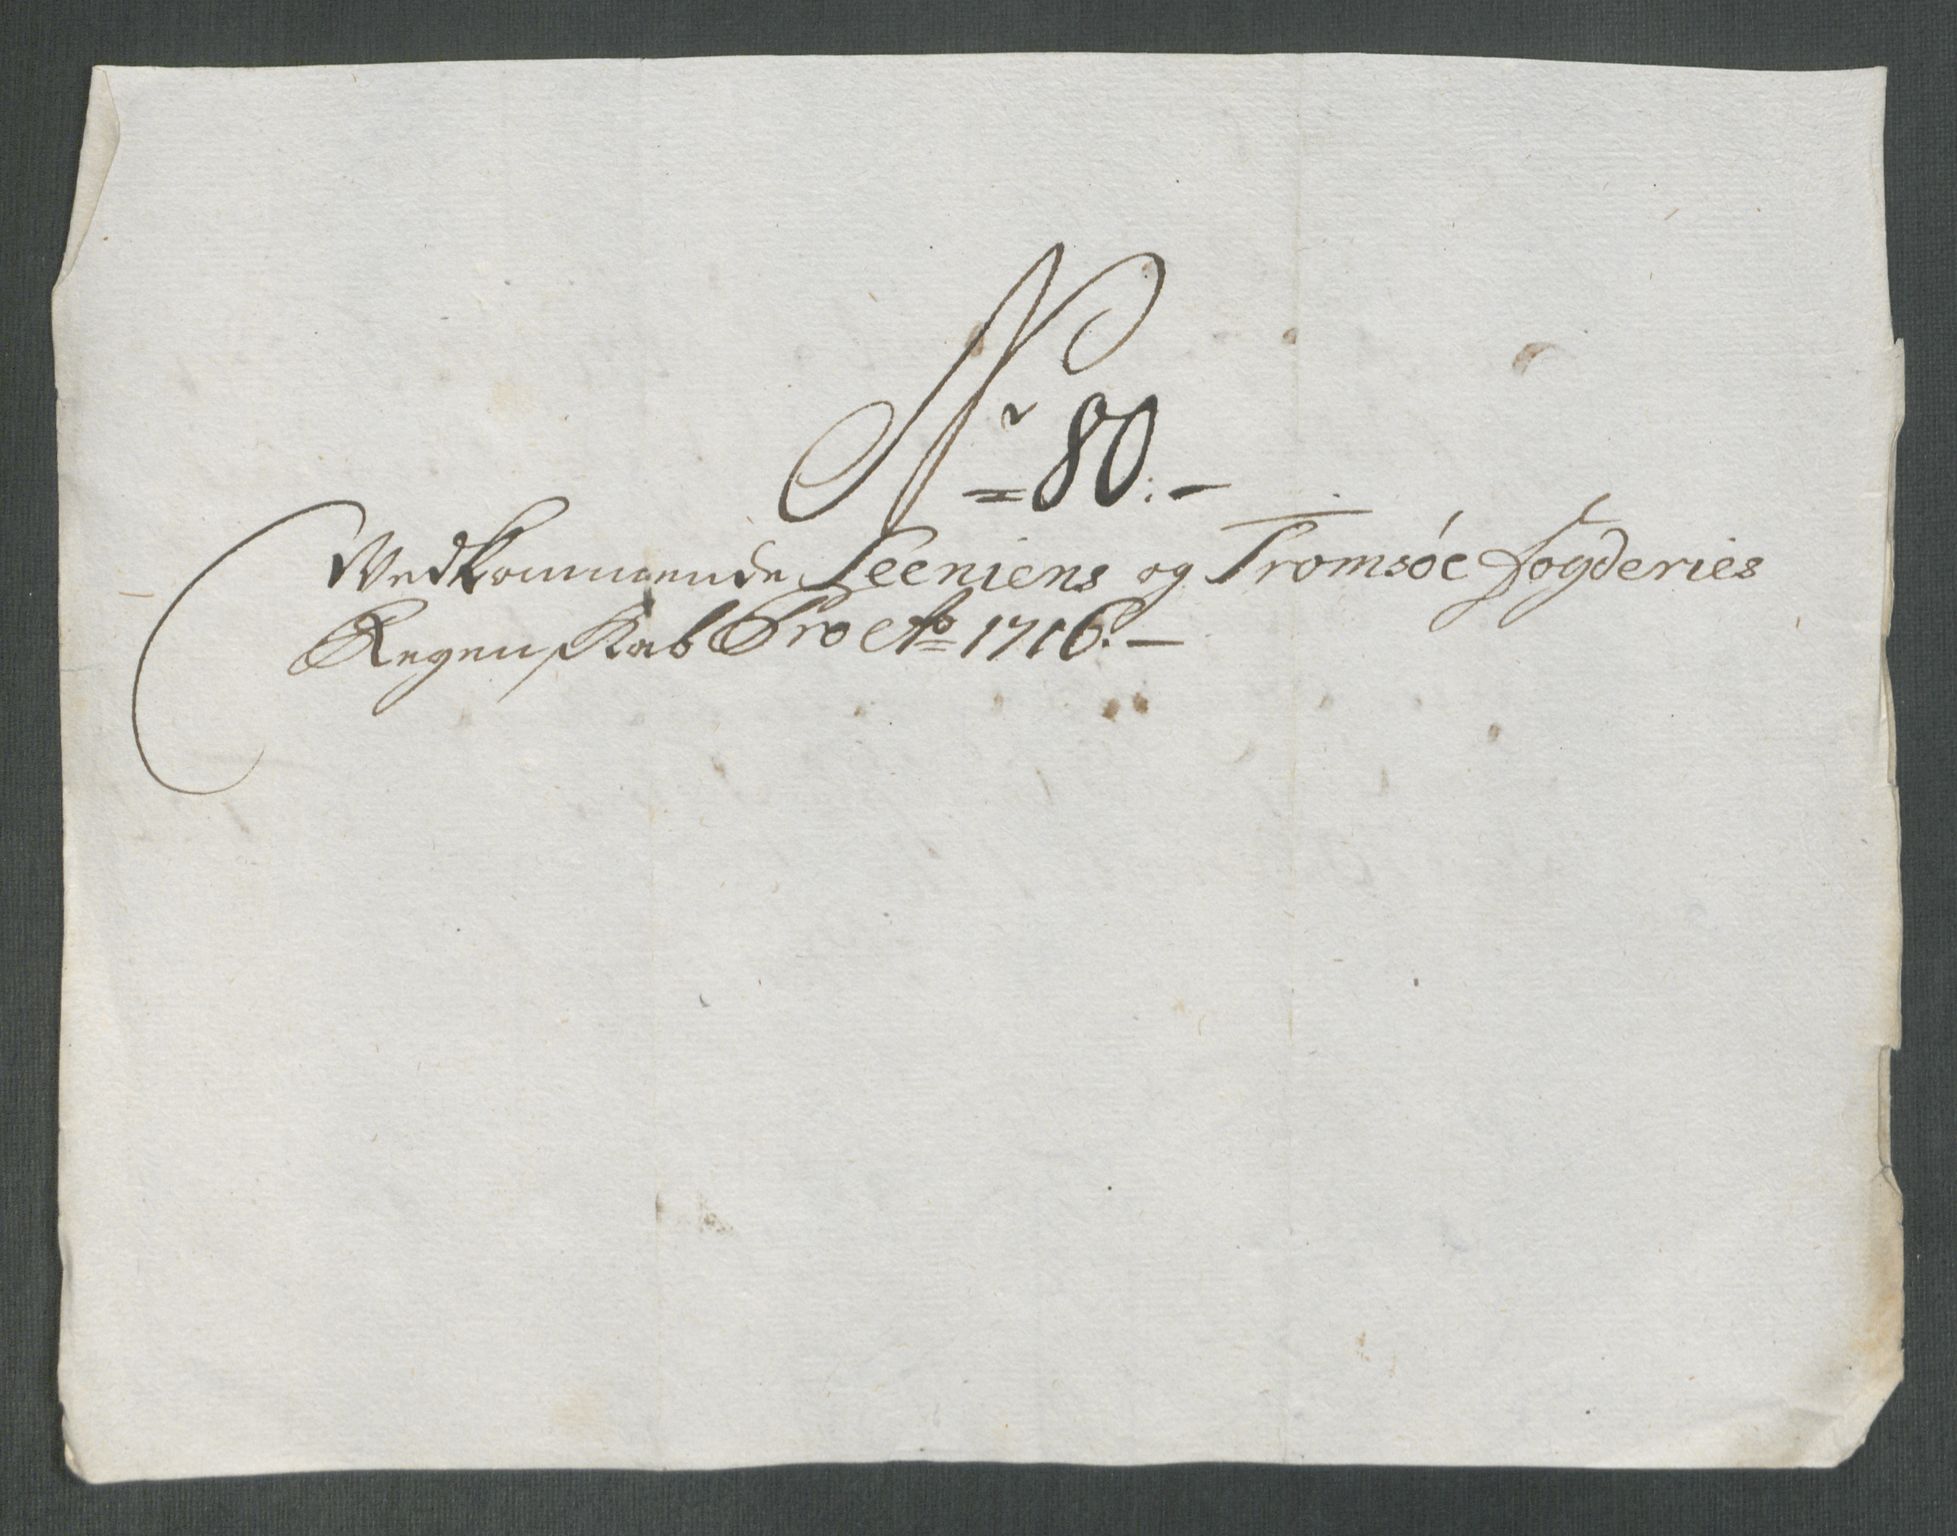 Nr 80:-
Vedkommende Seeniens og Tromsøe fogderies
Regenskab Pro Ao 1716.-